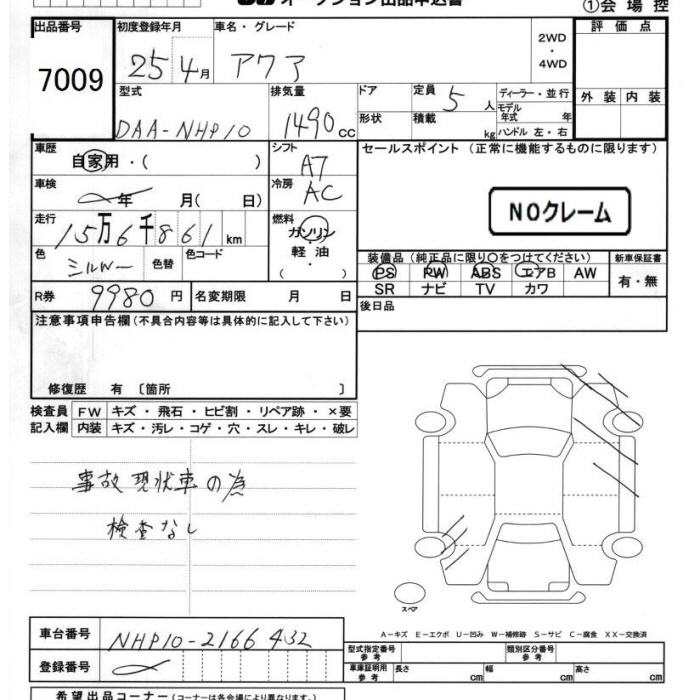 オークション出品申込書
①会場控
出品番号
7009
初度登録年月
25 4月
車名・グレード
アクア
2WD
・
4WD
評価点
外装 内装
型式
DAA-NHP10
排気量
1490cc
ドア
形状
定員 5人
積載 kg
ディーラー・並行
モデル年式 年
ハンドル 左・右
車歴
自家用・( )
シフト
A7
セールスポイント(正常に機能するものに限ります)
NOクレーム
車検
年 月( 日)
冷房
AC
走行
15万6千861km
燃料
ガソリン
軽油
・
( )
色
シルバー
色替
色コード
装備品(純正品に限り○をつけてください)
PS PW ABS エアB AW
SR ナビ TV カワ
新車保証書
有・無
R券 9980円
名変期限 月 日
後日品
注意事項申告欄(不具合内容等は具体的に記入して下さい)
修復歴 有〔箇所 〕
検査員記入欄
FW キズ・飛石・ヒビ割・リペア跡・×要
内装 キズ・汚レ・コゲ・穴・スレ・キレ・破レ
事故現状車の為
検査なし
スペア
A-キズ E-エクボ U-凹み W-補修跡 S-サビ C-腐食 XX-交換済
車台番号 NHP10-2166432
登録番号
型式指定番号参考
類別区分番号参考
車庫証明用参考 長さ cm 幅 cm 高さ cm
希望出品コーナー(コーナー名は各会場により異なります。)